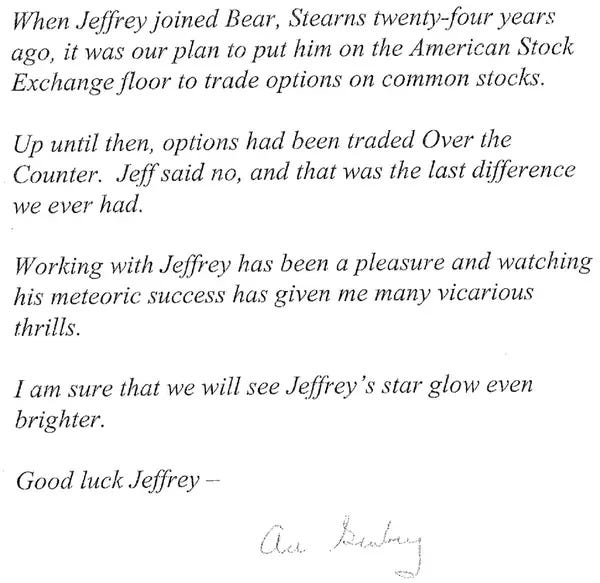 When Jeffrey joined Bear, Stearns twenty-four years
ago, it was our plan to put him on the American Stock
Exchange floor to trade options on common stocks.
Up until then, options had been traded Over the
Counter.  Jeff said no, and that was the last difference
we ever had.
Working with Jeffrey has been a pleasure and watching
his meteoric success has given me many vicarious
thrills.
I am sure that we will see Jeffrey's star glow even
brighter.
Good luck Jeffrey –